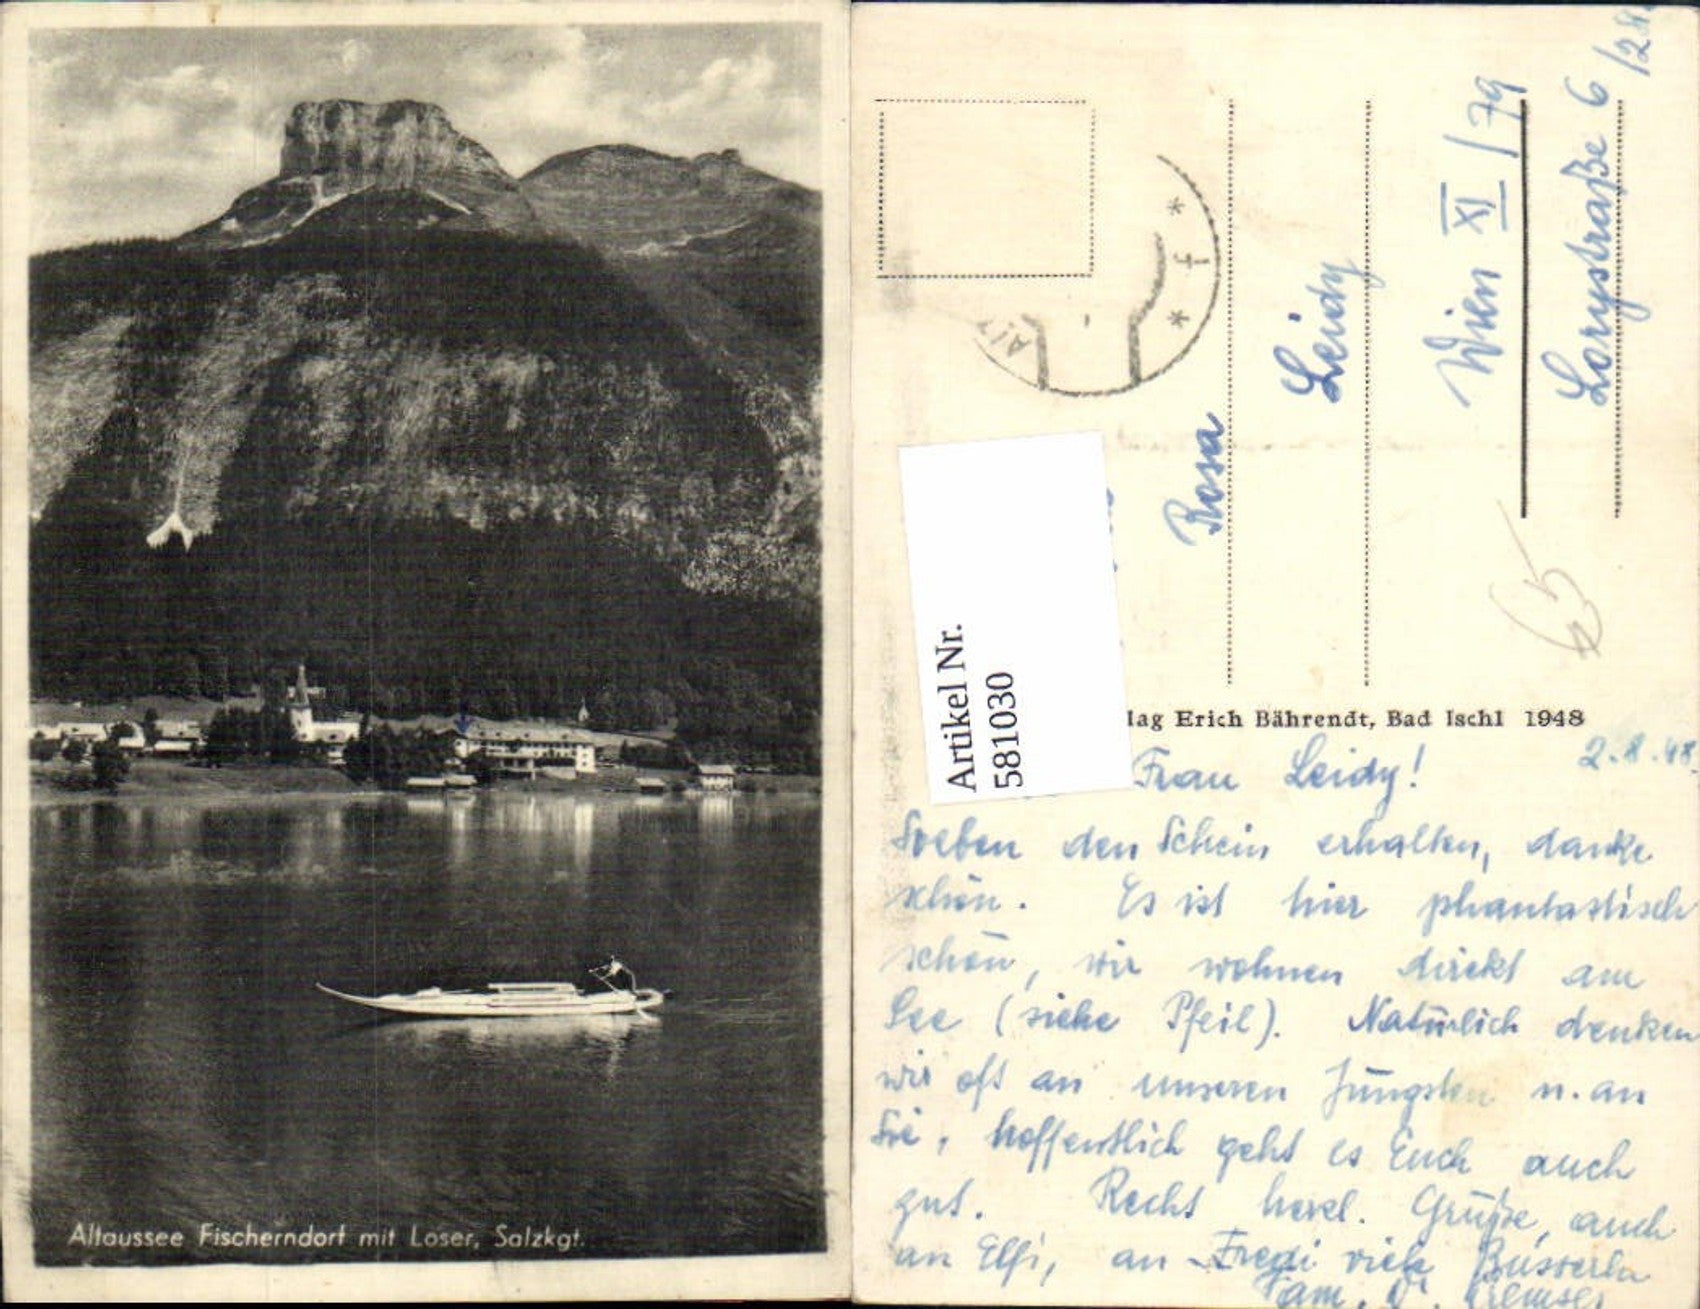 Altaussee Fischerndorf mit Loser, Salzkgt.
* f *
Rosa
Leidy
Wien XI / 79
Lorystraße 6
/28
65
Artikel Nr.
581030
lag Erich Bährendt, Bad Ischl 1948
2.8.48.
Frau Leidy!
Soeben den Schein erhalten, danke
schön. Es ist hier phantastisch
schön, wir wohnen direkt am
See (siehe Pfeil). Natürlich denken
wir oft an unseren Jüngsten u. an
Sie, hoffentlich geht es Euch auch
gut. Recht herzl. Grüße, auch
an Elfi, an Fredi viele Busserln
Fam.